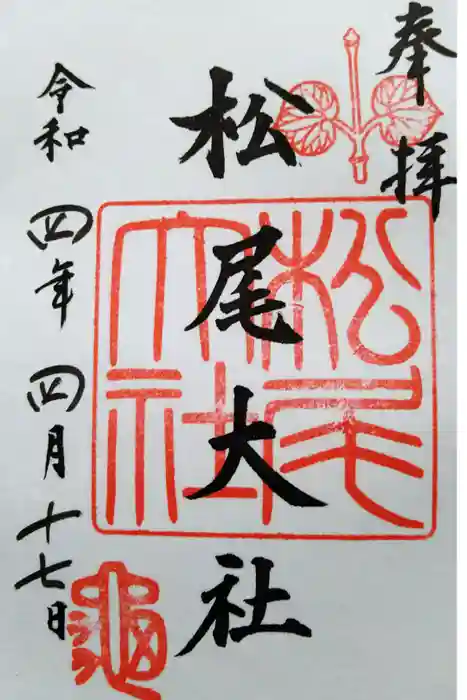 奉拝
松尾大社
松尾大社
令和四年四月十七日
龜